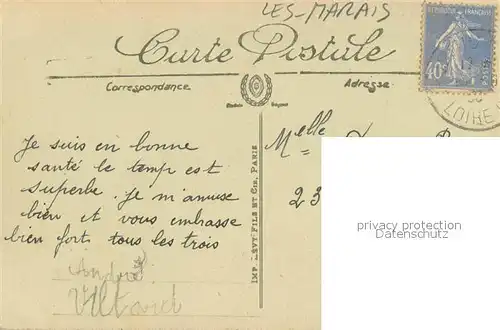 LES-MARAIS
Carte Postale
REPUBLIQUE FRANÇAISE
40c
POSTES
LOIRE
Correspondance
Adresse
Je suis en bonne
santé le temp est
superbe. Je m'amuse
bien et vous embrasse
bien fort tous les trois
André
Melle
23
IMP. LÉVY FILS ET CIE, PARIS
privacy protection
Datenschutz